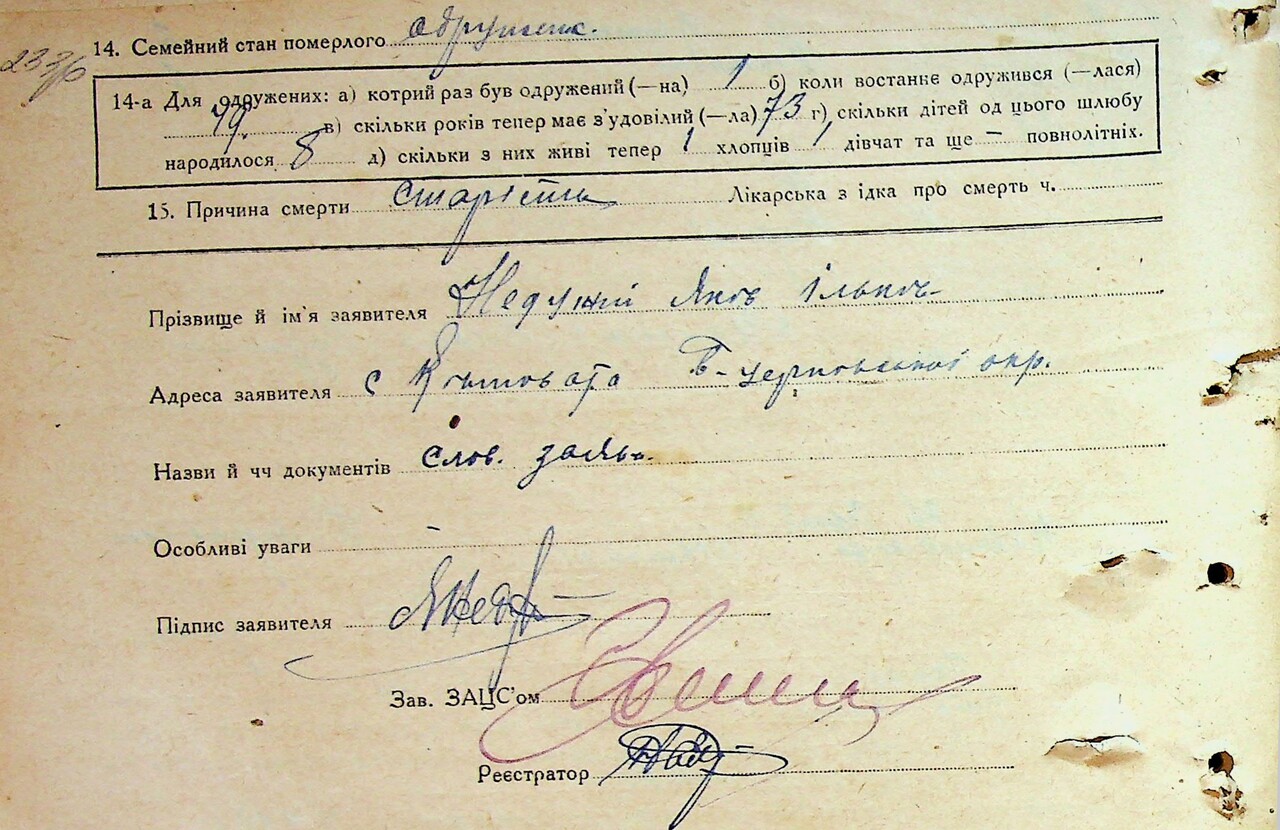 14. Семейний стан померлого одружен.
14-а Для одружених: а) котрий раз був одружений (—на) 1 б) коли востаннє одружився (—лася)
в) скільки років тепер має з'удовілий (—ла) 73 г) скільки дітей од цього шлюбу
народилося 8 д) скільки з них живі тепер 1 хлопців 1 дівчат та ще – повнолітніх.
15. Причина смерти старість Лікарська з ідка про смерть ч.
Прізвище й ім'я заявителя Недужий Яков Ількович
Адреса заявителя с Б-церковської окр.
Назви й чч документів слов. заяв.
Особливі уваги –
Підпис заявителя
Зав. ЗАЦС'ом
Реєстратор